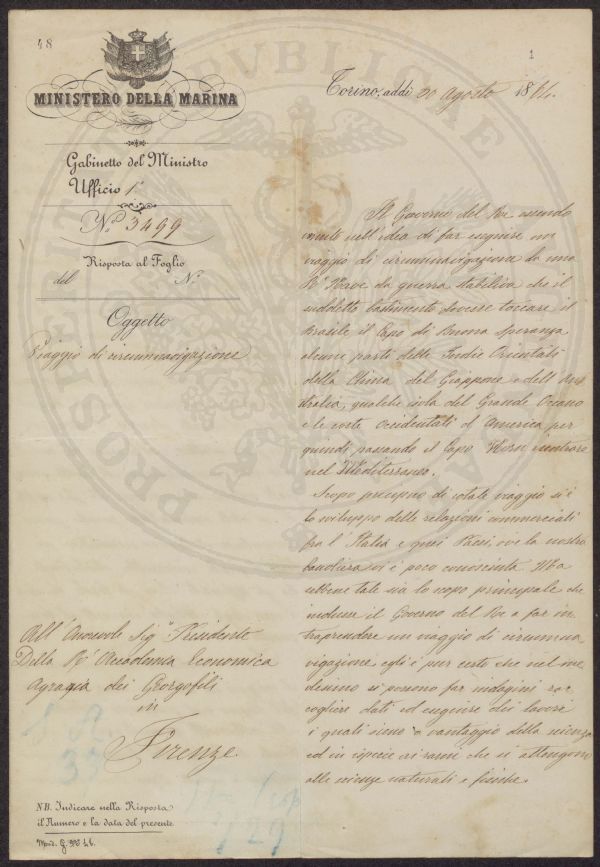 48
1
MINISTERO DELLA MARINA
Gabinetto del Ministro
Ufficio 1°
N.° 3499
Risposta al Foglio
del N.°
Oggetto
Viaggio di circumnavigazione
Torino, addì 20 Agosto 1864.
Il Governo del Re essendo
venuto nell'idea di far eseguire un
viaggio di circumnavigazione da una
R.a Nave da guerra stabiliva che il
suddetto bastimento dovesse toccare il
Brasile il Capo di Buona Speranza
alcune parti delle Indie Orientali
della China del Giappone e dell'Aus
tralia, qualche isola del Grande Oceano
e le coste Occidentali d'America per
quindi passando il Capo Horn rientrare
nel Mediterraneo.
Scopo precipuo di cotale viaggio si è
lo sviluppo delle relazioni commerciali
fra l'Italia e quei Paesi, ove la nostra
bandiera vi è poco conosciuta. Ma
sebbene tale sia lo scopo principale che
indusse il Governo del Re a far in
traprendere un viaggio di circumna
vigazione, egli è pur certo che nel me
desimo si possono far indagini rac
cogliere dati ed eseguire dei lavori
i quali siano a vantaggio della scienza
ed in ispecie ai rami che si attengono
alle scienze naturali e fisiche.
All'Onorevole Sig.r Presidente
Della R.a Accademia Economica
Agraria dei Georgofili
in
Firenze
NB. Indicare nella Risposta
il Numero e la data del presente
Mod. G. N.° 46.
PROSPERITATI PUBLICAE